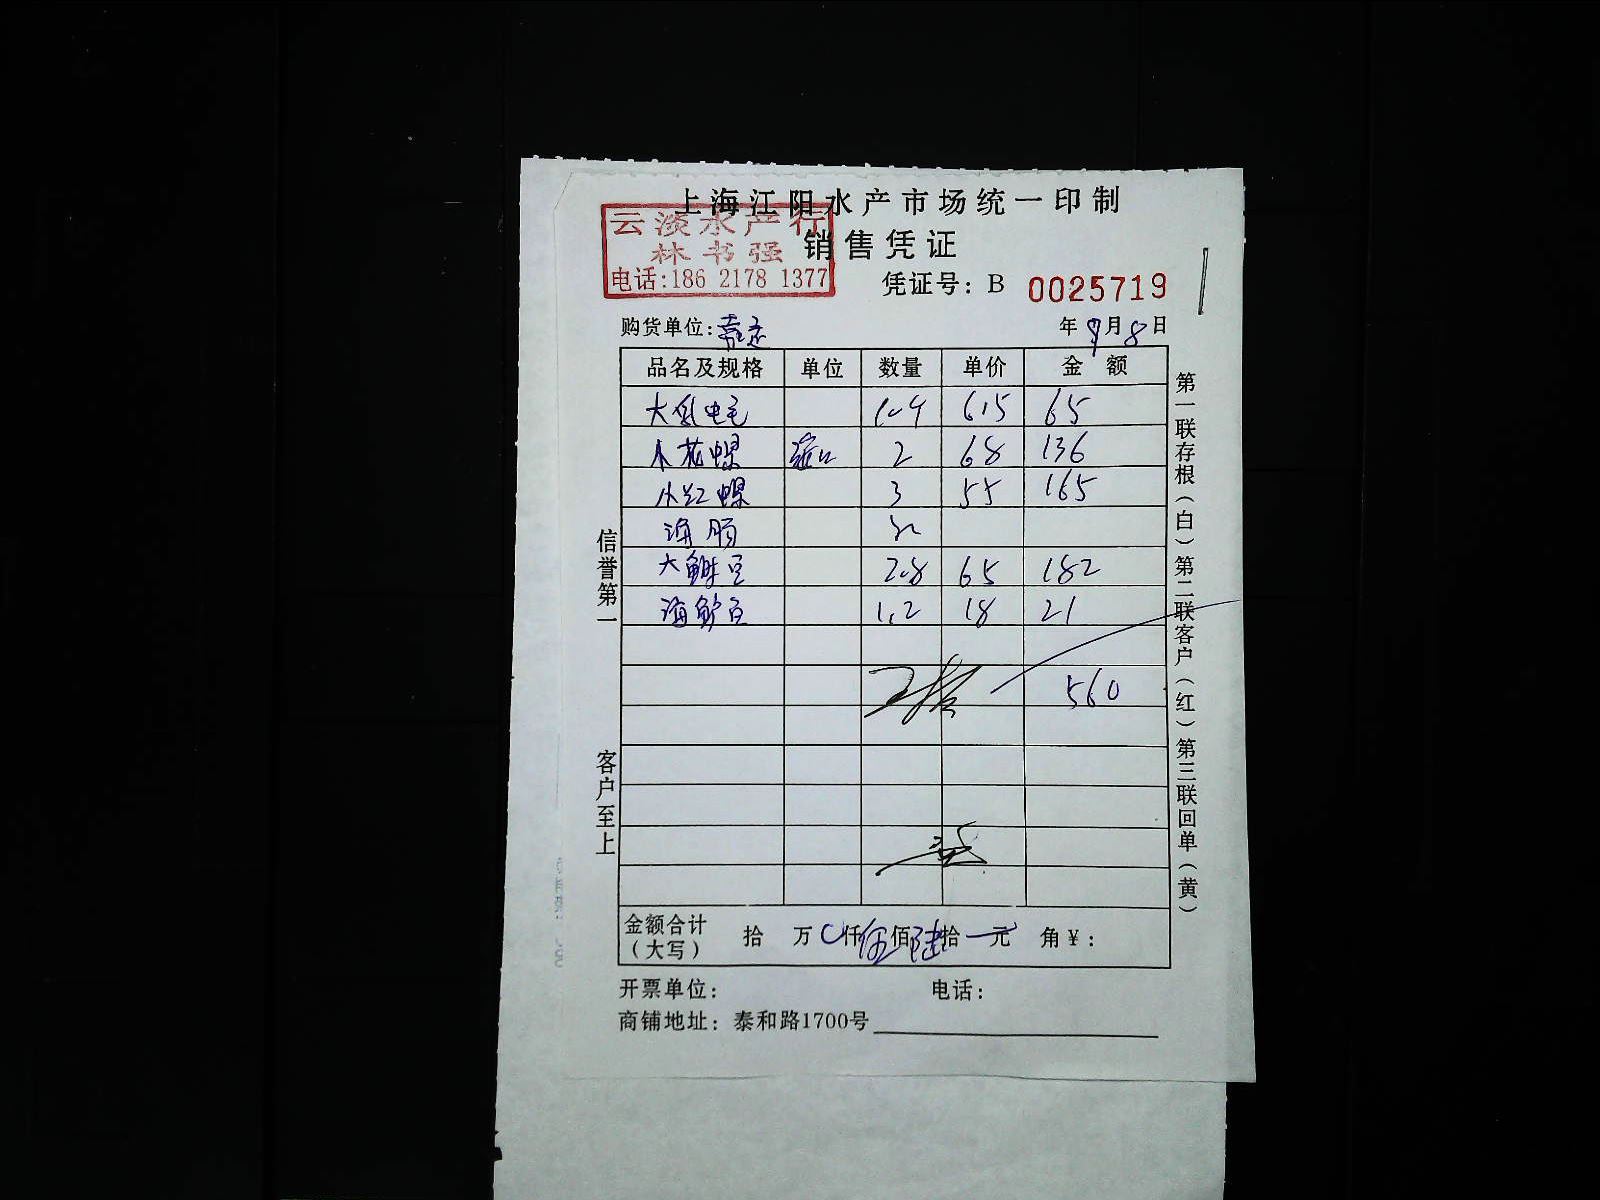 上海江阳水产市场统一印制
云淡水产行
林书强
电话:186 2178 1377
销售凭证
凭证号: B 0025719
购货单位:
年 9月8日
品名及规格 单位 数量 单价 金额
大 10.4 6.5 65
小花螺 2 68 136
小红螺 3 55 165
海肠
大 2.8 65 182
海 1.2 18 21
560
金额合计（大写） 拾 万 仟伍佰陆拾 元 角 ¥:
开票单位: 电话:
商铺地址: 泰和路1700号
信誉第一
客户至上
第一联存根(白) 第二联客户(红) 第三联回单(黄)